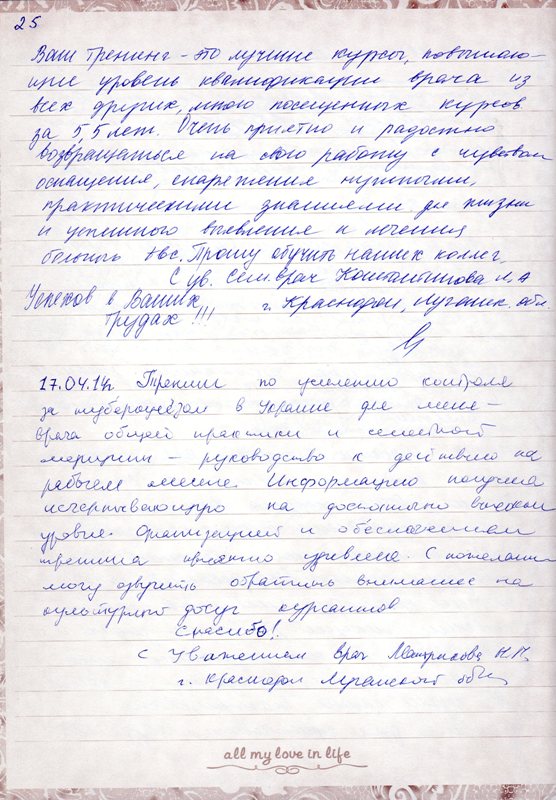 25
Ваш тренинг - это лучшие курсы, повышаю-
щие уровень квалификации врача из
всех других, мною посещенных курсов
за 5,5 лет. Очень приятно и радостно
возвращаться на свою работу с чувством
оснащения, снаряжения нужными,
практическими знаниями для жизни
и успешного выявления и лечения
больных твс. Прошу обучить наших коллег.
С ув. сем. врач Константинова Л. А
Успехов в Ваших г. Краснодон, Луганск. обл.
трудах !!!
17.04.14г Тренинг по усилению контроля
за туберкулёзом в Украине для меня -
врача общей практики и семейной
медицины - руководство к действию на
рабочем месте. Информацию получила
исчерпывающую на достаточно высоком
уровне. Организацией и обеспечением
тренинга приятно удивлена. С пожелани
могу озвучить обратить внимание на
культурный досуг курсантов
Спасибо!
С уважением врач Н.Н.
г. Краснодон Луганской обл.
all my love in life